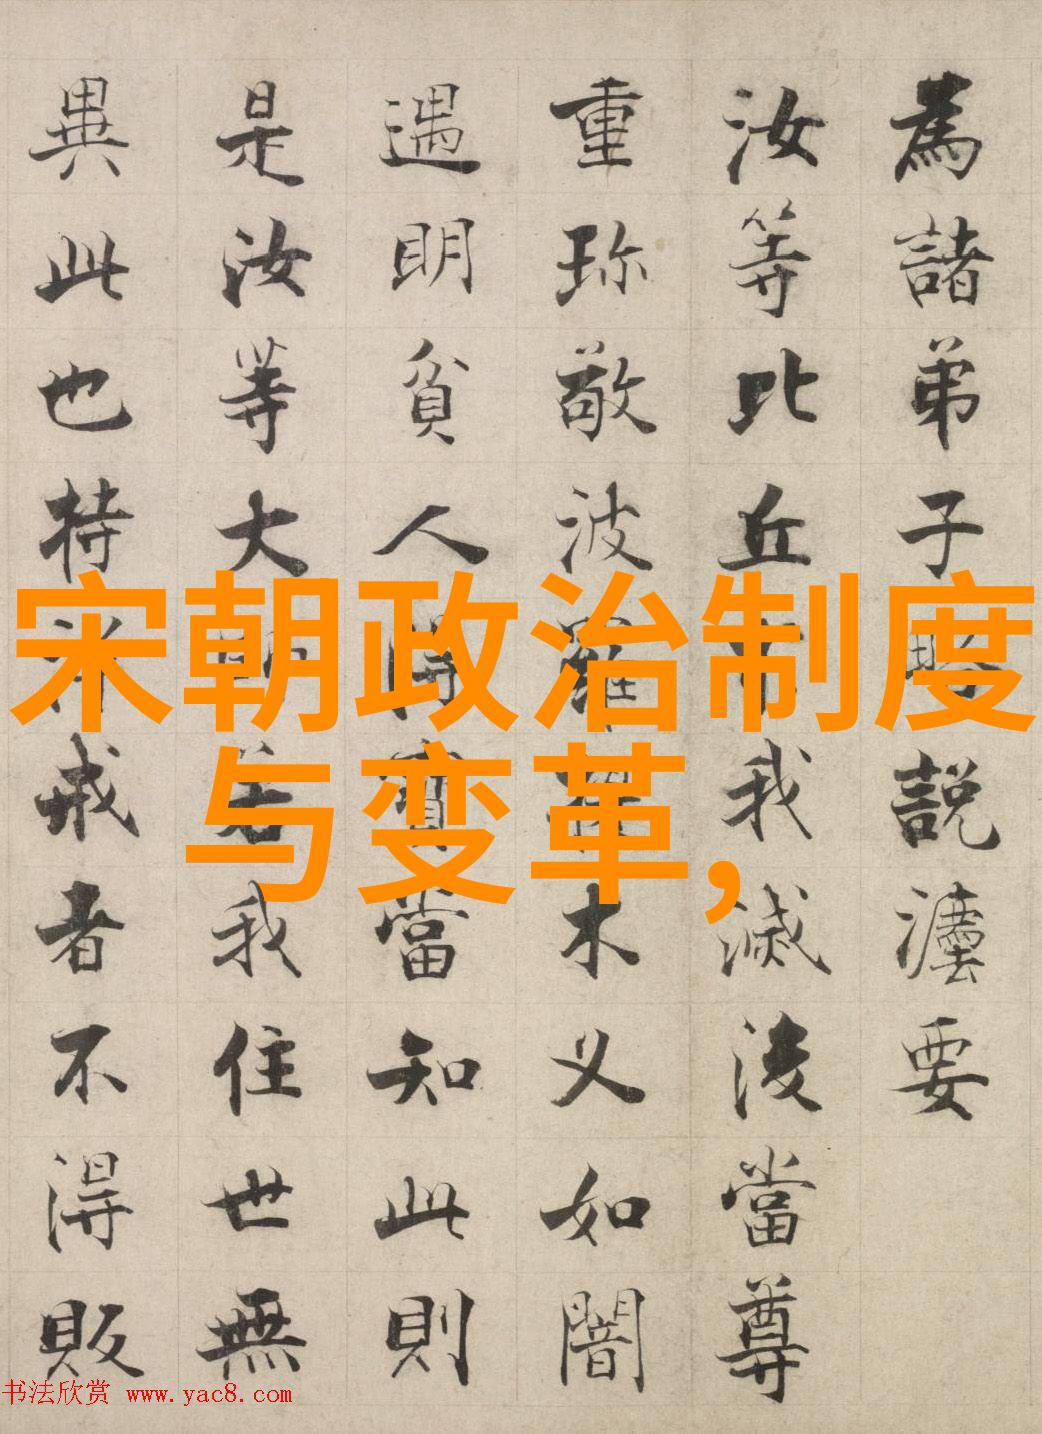 為諸弟子略說要
汝等比丘我滅後當尊
重珎敬波羅木叉如闇
遇明貧人得寶當知此則
是汝等大師若我住世無
異此也持淨戒者不得販
宋朝政治制度
与变革,
书法欣赏 www.yac8.com